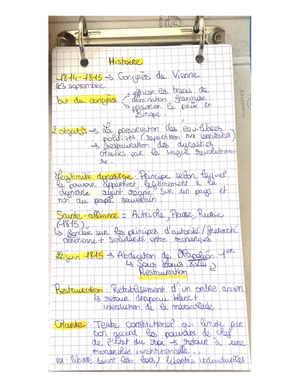 Histoire
1814-1815 → Congrès de Vienne
23 septembre
but du congrès
effacer les traces de
domination française
préserver la paix en
Europe
2 objectifs → La préservation des équilibres
politiques (répartition territoires)
→ Restauration des dynasties
par la vague révolutionnai
re.
Légitimité dynastique Principe selon lequel
le pouvoir appartient légitimement à la
dynastie ayant régné sur un pays et
non au peuple souverain
Sainte-alliance = Autriche, Prusse, Russie
(1815)
↳ fondée sur les principes d'autorité / fraternité
chrétienne + solidarité entre monarques
22 juin 1815 → Abdication de Napoléon 1er
↳ Louis XVIII
Restauration
Restauration Rétablissement d'un ordre ancien
↳ retour drapeau blanc +
interdiction de la marseillaise
Charte Texte constitutionnel qui limite par
son accord les pouvoirs du chef
de l'État du roi → retour à une
monarchie constitutionnelle
ex: devant les lois / libertés individuelles